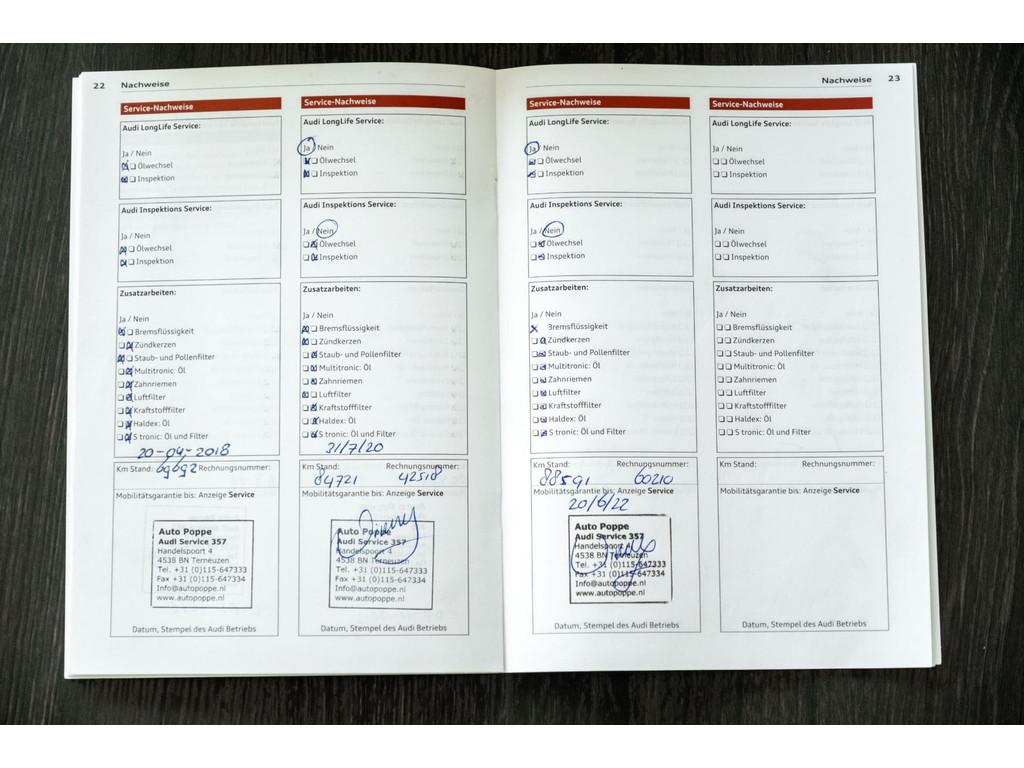 22 Nachweise
Service-Nachweise
Audi LongLife Service:
Ja / Nein
Ölwechsel
Inspektion
Audi Inspektions Service:
Ja / Nein
Ölwechsel
Inspektion
Zusatzarbeiten:
Ja / Nein
Bremsflüssigkeit
Zündkerzen
Staub- und Pollenfilter
Multitronic: Öl
Zahnriemen
Luftfilter
Kraftstofffilter
Haldex: Öl
S tronic: Öl und Filter
20-04-2018
Km Stand: 69692 Rechnungsnummer:
Mobilitätsgarantie bis: Anzeige Service
Auto Poppe
Audi Service 357
Handelspoort 4
4538 BN Terneuzen
Tel. +31 (0)115-647333
Fax +31 (0)115-647334
Info@autopoppe.nl
www.autopoppe.nl
Datum, Stempel des Audi Betriebs
Service-Nachweise
Audi LongLife Service:
Ja / Nein
Ölwechsel
Inspektion
Audi Inspektions Service:
Ja / Nein
Ölwechsel
Inspektion
Zusatzarbeiten:
Ja / Nein
Bremsflüssigkeit
Zündkerzen
Staub- und Pollenfilter
Multitronic: Öl
Zahnriemen
Luftfilter
Kraftstofffilter
Haldex: Öl
S tronic: Öl und Filter
31/7/20
Km Stand: Rechnungsnummer:
84721 42518
Mobilitätsgarantie bis: Anzeige Service
Auto Poppe
Audi Service 357
Handelspoort 4
4538 BN Terneuzen
Tel. +31 (0)115-647333
Fax +31 (0)115-647334
Info@autopoppe.nl
www.autopoppe.nl
Datum, Stempel des Audi Betriebs
Nachweise 23
Service-Nachweise
Audi LongLife Service:
Ja / Nein
Ölwechsel
Inspektion
Audi Inspektions Service:
Ja / Nein
Ölwechsel
Inspektion
Zusatzarbeiten:
Ja / Nein
Bremsflüssigkeit
Zündkerzen
Staub- und Pollenfilter
Multitronic: Öl
Zahnriemen
Luftfilter
Kraftstofffilter
Haldex: Öl
S tronic: Öl und Filter
Km Stand: Rechnungsnummer:
88591 60210
Mobilitätsgarantie bis: Anzeige Service
20/6/22
Auto Poppe
Audi Service 357
Handelspoort 4
4538 BN Terneuzen
Tel. +31 (0)115-647333
Fax +31 (0)115-647334
Info@autopoppe.nl
www.autopoppe.nl
Datum, Stempel des Audi Betriebs
Service-Nachweise
Audi LongLife Service:
Ja / Nein
Ölwechsel
Inspektion
Audi Inspektions Service:
Ja / Nein
Ölwechsel
Inspektion
Zusatzarbeiten:
Ja / Nein
Bremsflüssigkeit
Zündkerzen
Staub- und Pollenfilter
Multitronic: Öl
Zahnriemen
Luftfilter
Kraftstofffilter
Haldex: Öl
S tronic: Öl und Filter
Km Stand: Rechnungsnummer:
Mobilitätsgarantie bis: Anzeige Service
Datum, Stempel des Audi Betriebs